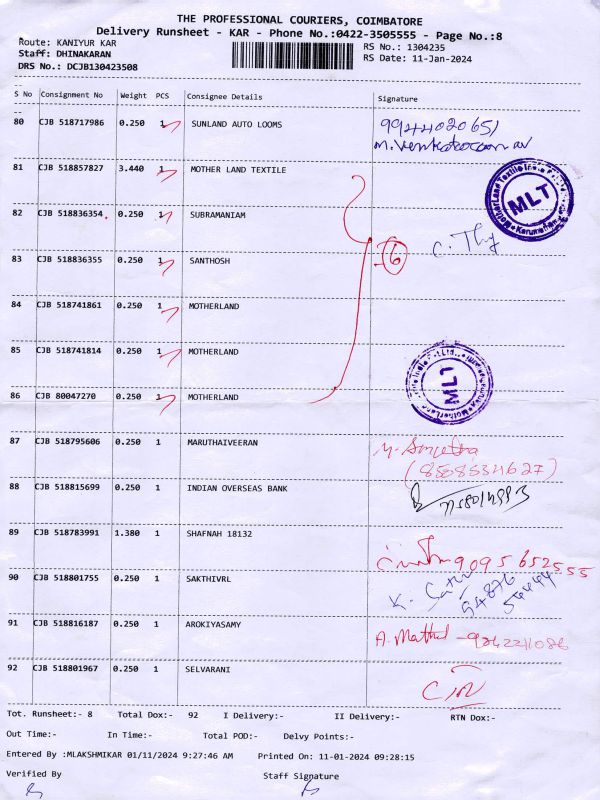 THE PROFESSIONAL COURIERS, COIMBATORE
Delivery Runsheet - KAR - Phone No.:0422-3505555 - Page No.:8
Route: KANIYUR KAR RS No.: 1304235
Staff: DHINAKARAN RS Date: 11-Jan-2024
DRS No.: DCJB130423508
S No Consignment No Weight PCS Consignee Details Signature
80 CJB 518717986 0.250 1 SUNLAND AUTO LOOMS
81 CJB 518857827 3.440 1 MOTHER LAND TEXTILE
MLT
82 CJB 518836354 0.250 1 SUBRAMANIAM
6
83 CJB 518836355 0.250 1 SANTHOSH
84 CJB 518741861 0.250 1 MOTHERLAND
85 CJB 518741814 0.250 1 MOTHERLAND
MLT
86 CJB 80047270 0.250 1 MOTHERLAND
87 CJB 518795606 0.250 1 MARUTHAIVEERAN
(8558534627)
88 CJB 518815699 0.250 1 INDIAN OVERSEAS BANK
89 CJB 518783991 1.380 1 SHAFNAH 18132
9095652555
90 CJB 518801755 0.250 1 SAKTHIVRL
91 CJB 518816187 0.250 1 AROKIYASAMY
92 CJB 518801967 0.250 1 SELVARANI
Tot. Runsheet:- 8 Total Dox:- 92 I Delivery:- II Delivery:- RTN Dox:-
Out Time:- In Time:- Total POD:- Delvy Points:-
Entered By :MLAKSHMIKAR 01/11/2024 9:27:46 AM Printed On: 11-01-2024 09:28:15
Verified By Staff Signature